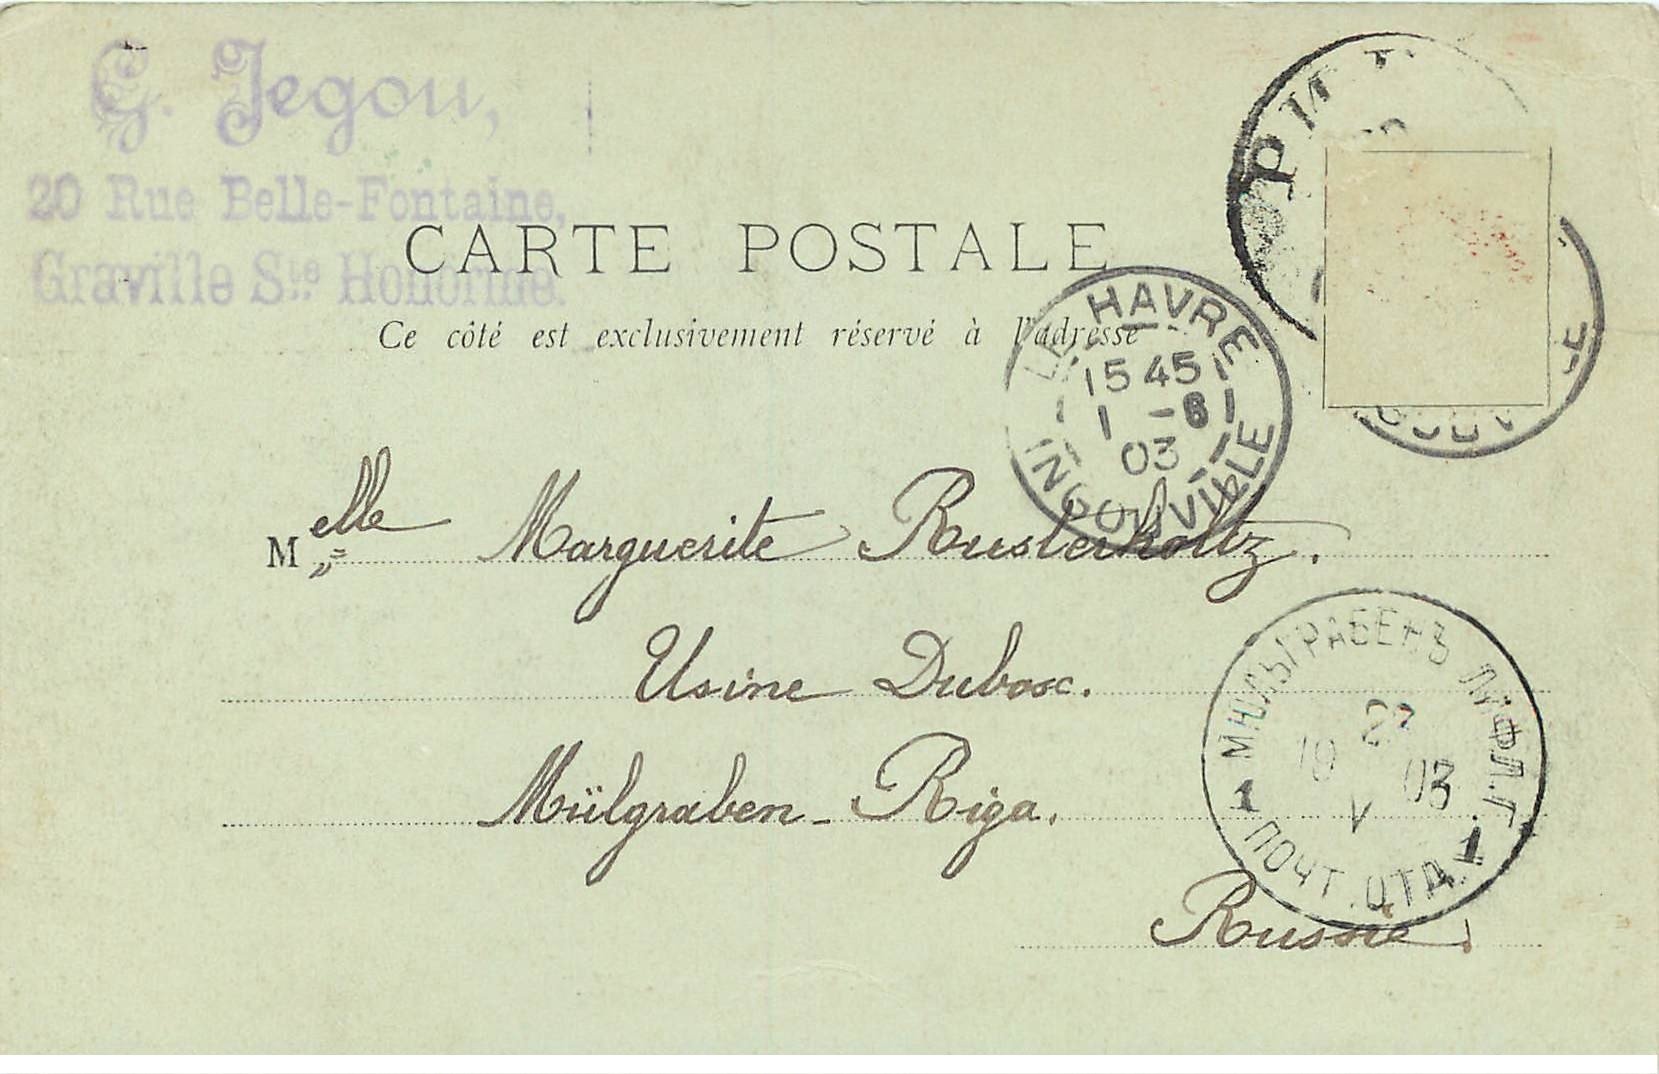 G. Jegou,
20 Rue Belle-Fontaine,
Graville Ste Honorine.
CARTE POSTALE
Ce côté est exclusivement réservé à l'adresse
LE HAVRE
15 45
1 -6
03
INGOUVILLE
Melle Marguerite Rusterholtz.
Usine Dubosc.
Mülgraben - Riga.
Russie.
МЮЛЬГРАБЕНЪ ЛИФЛ. Г.
19 03
V
1 ПОЧТ. ОТД. 1